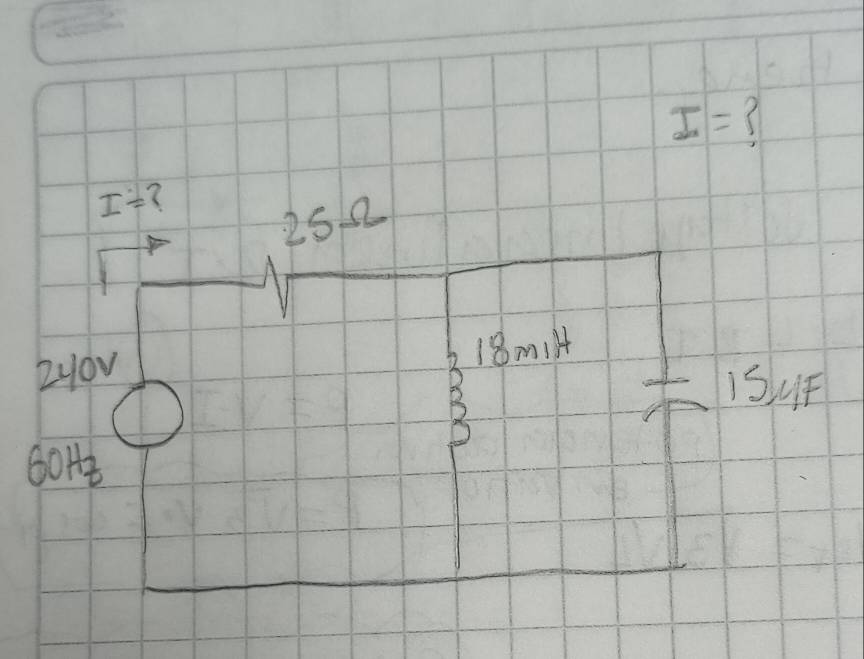 I=?
I=?
25Ω
18mH
240V
15µF
60Hz